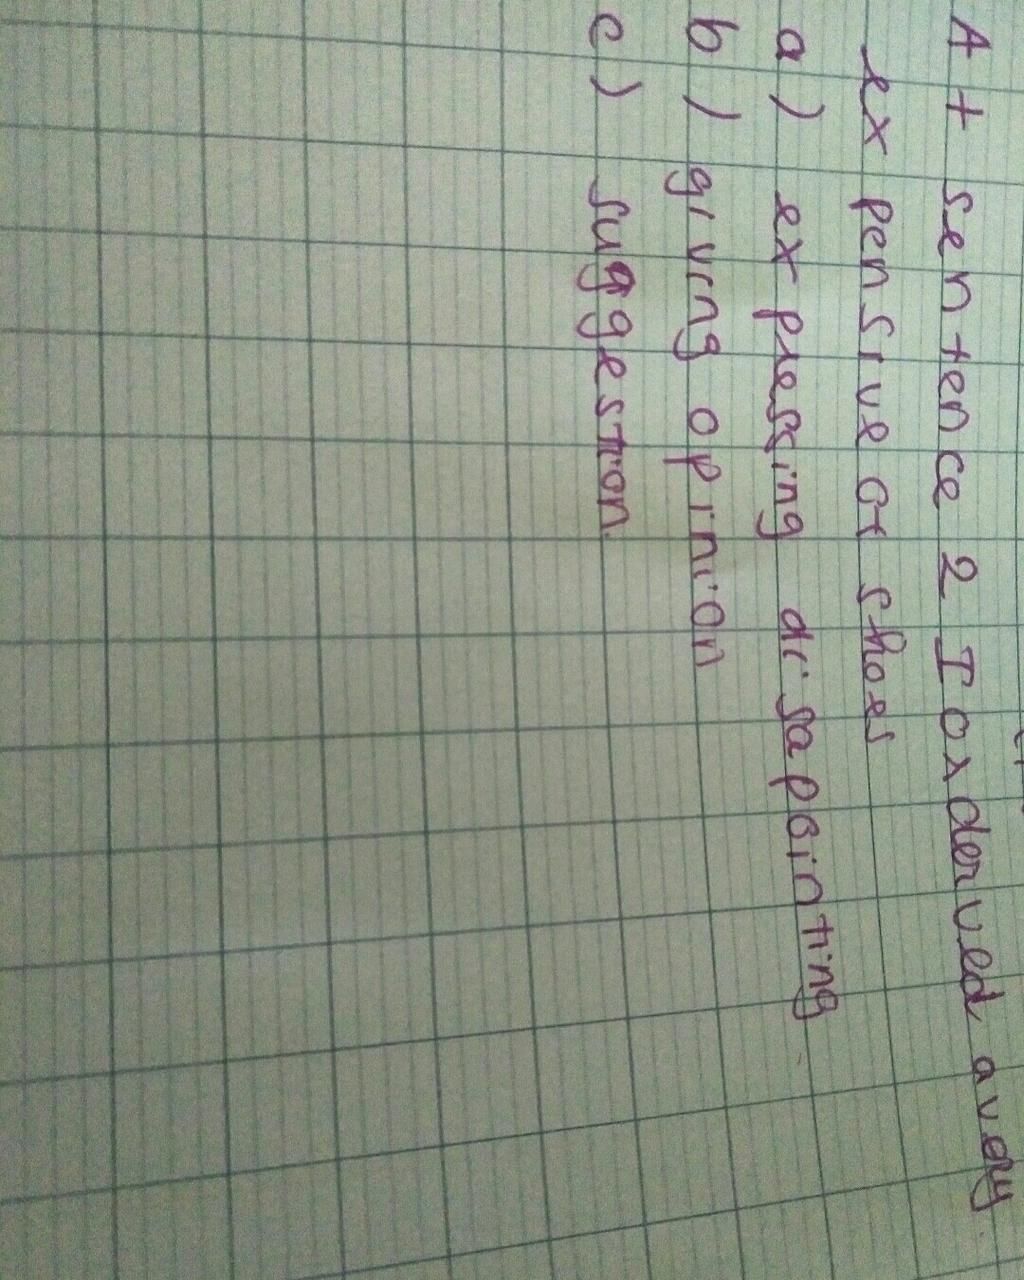 At sentence 2 I oxderved avery
expensive of shoes
a) expressing disapointing
b) giving opinion
c) suggestion.